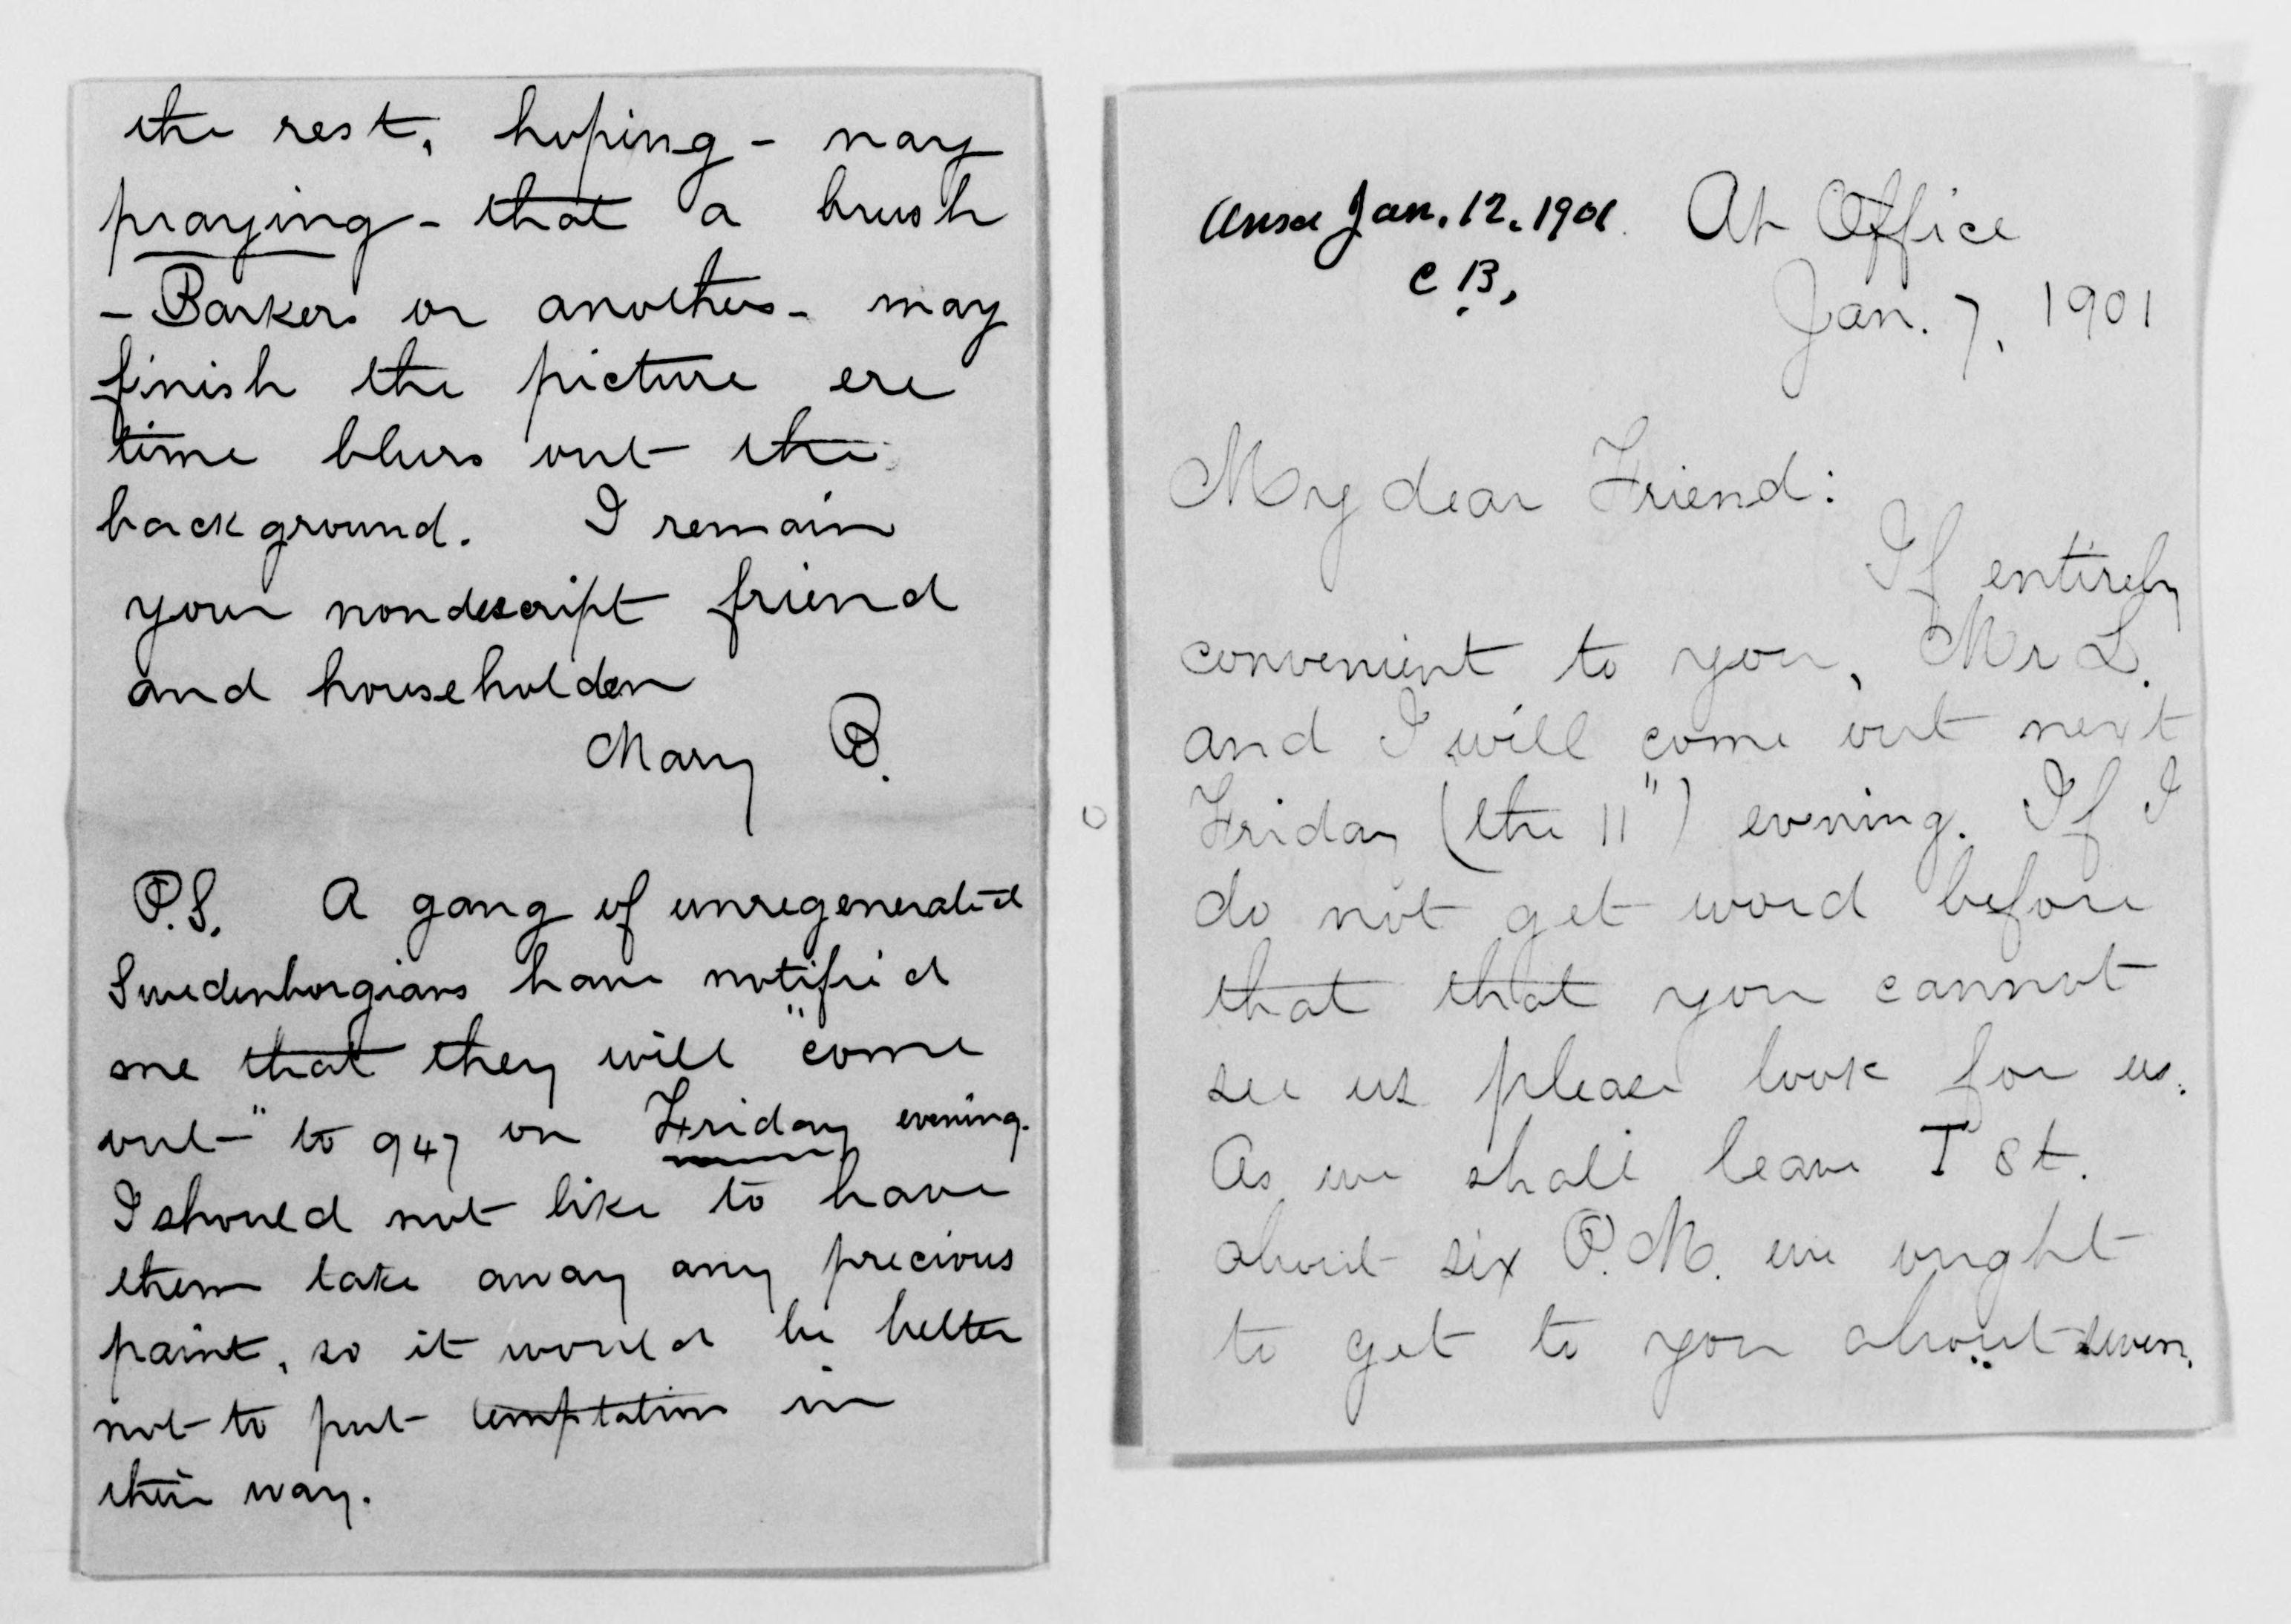 the rest, hoping - nay
praying - that a brush
- Barkers or anothers - may
finish the picture ere
time blurs out the
background. I remain
your nondescript friend
and householder
Mary B.
P.S. A gang of unregenerated
Swedenborgians have notified
me that they will "come
out" to 947 on Friday evening.
I should not like to have
them take away any precious
paint, so it would be better
not to put temptation in
their way.
Ansd Jan. 12. 1901.
C.B.
At Office
Jan. 7, 1901
My dear Friend:
If entirely
convenient to you, Mr L.
and I will come out next
Friday (the 11") evening. If I
do not get word before
that that you cannot
see us please look for us.
As we shall leave T St.
about six P.M. we ought
to get to you about seven.